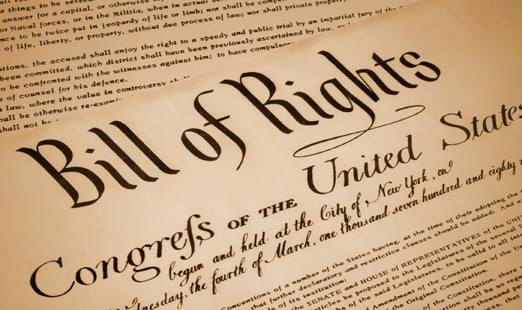 r things to be seized.
answer for a capital, or otherwise
or Naval forces, or in the Militia, when in actual
ce to be twice put in jeopardy of life or limb; nor shall be
of life, liberty, or property, without due process of law; nor shall private property
the accused shall enjoy the right to a speedy and public trial by an impartial jury of the
been committed, which district shall have been previously ascertained by law,
to be confronted with the witnesses against him; to have
of counsel for his defence.
law, where the value in controversy
all be otherwise re-exam
shall not be
Bill of Rights
Congreſs OF THE United States
begun and held at the City of New York, on
Wednesday, the fourth of March, one thousand seven hundred and eighty
Conventions of a number of the States having, at the time of their adopting the
that further declaratory and restrictive clauses should be added: And as
the SENATE and HOUSE of REPRESENTATIVES of the UNI
be proposed to the Legislatures of the several
of the said Legislatures, to be valid to all
Amendment of the Constitution of the
of the Original Constitution.
of the Constitution, there